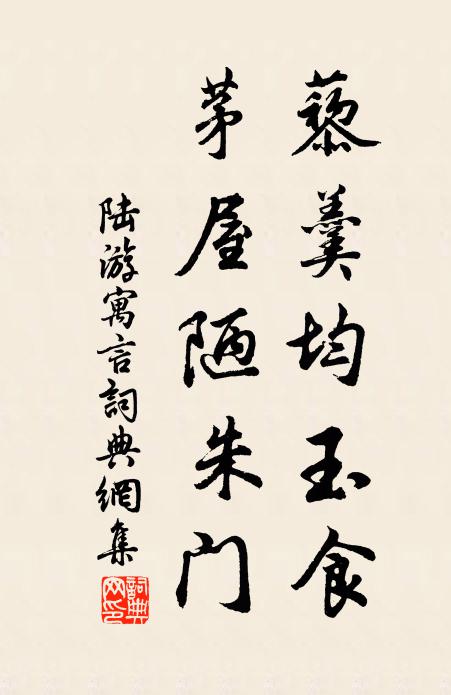 藜羹均玉食
茅屋陋朱门
陆游寓言詞典網集
詞典网印